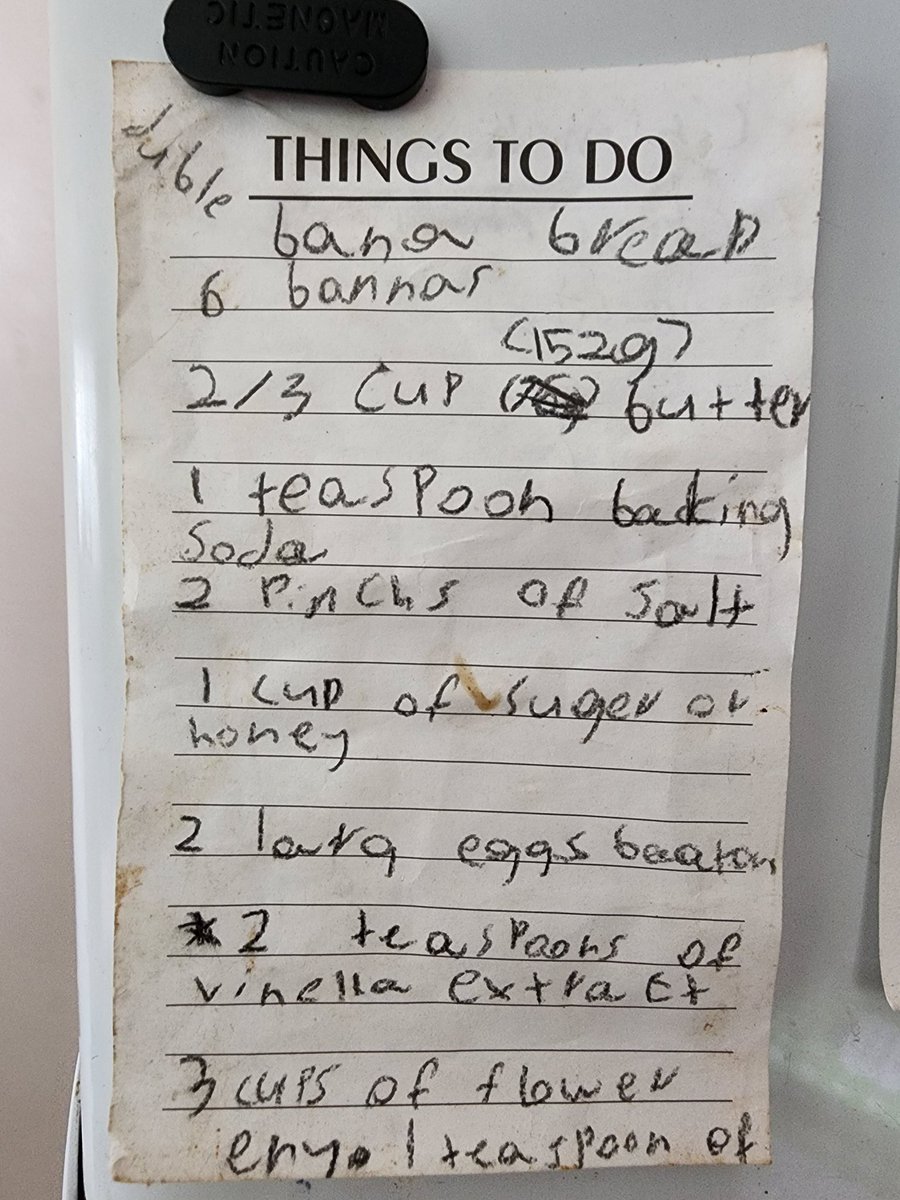 CAUTION
MAGNETIC
duble
THINGS TO DO
bana bread
6 bannas
(152g)
2/3 cup butter
1 teaspoon backing
soda
2 pinchs of salt
1 cup of suger or
honey
2 larg eggs beaton
*2 teaspoons of
vinella extract
3 cups of flower
1 teaspoon of